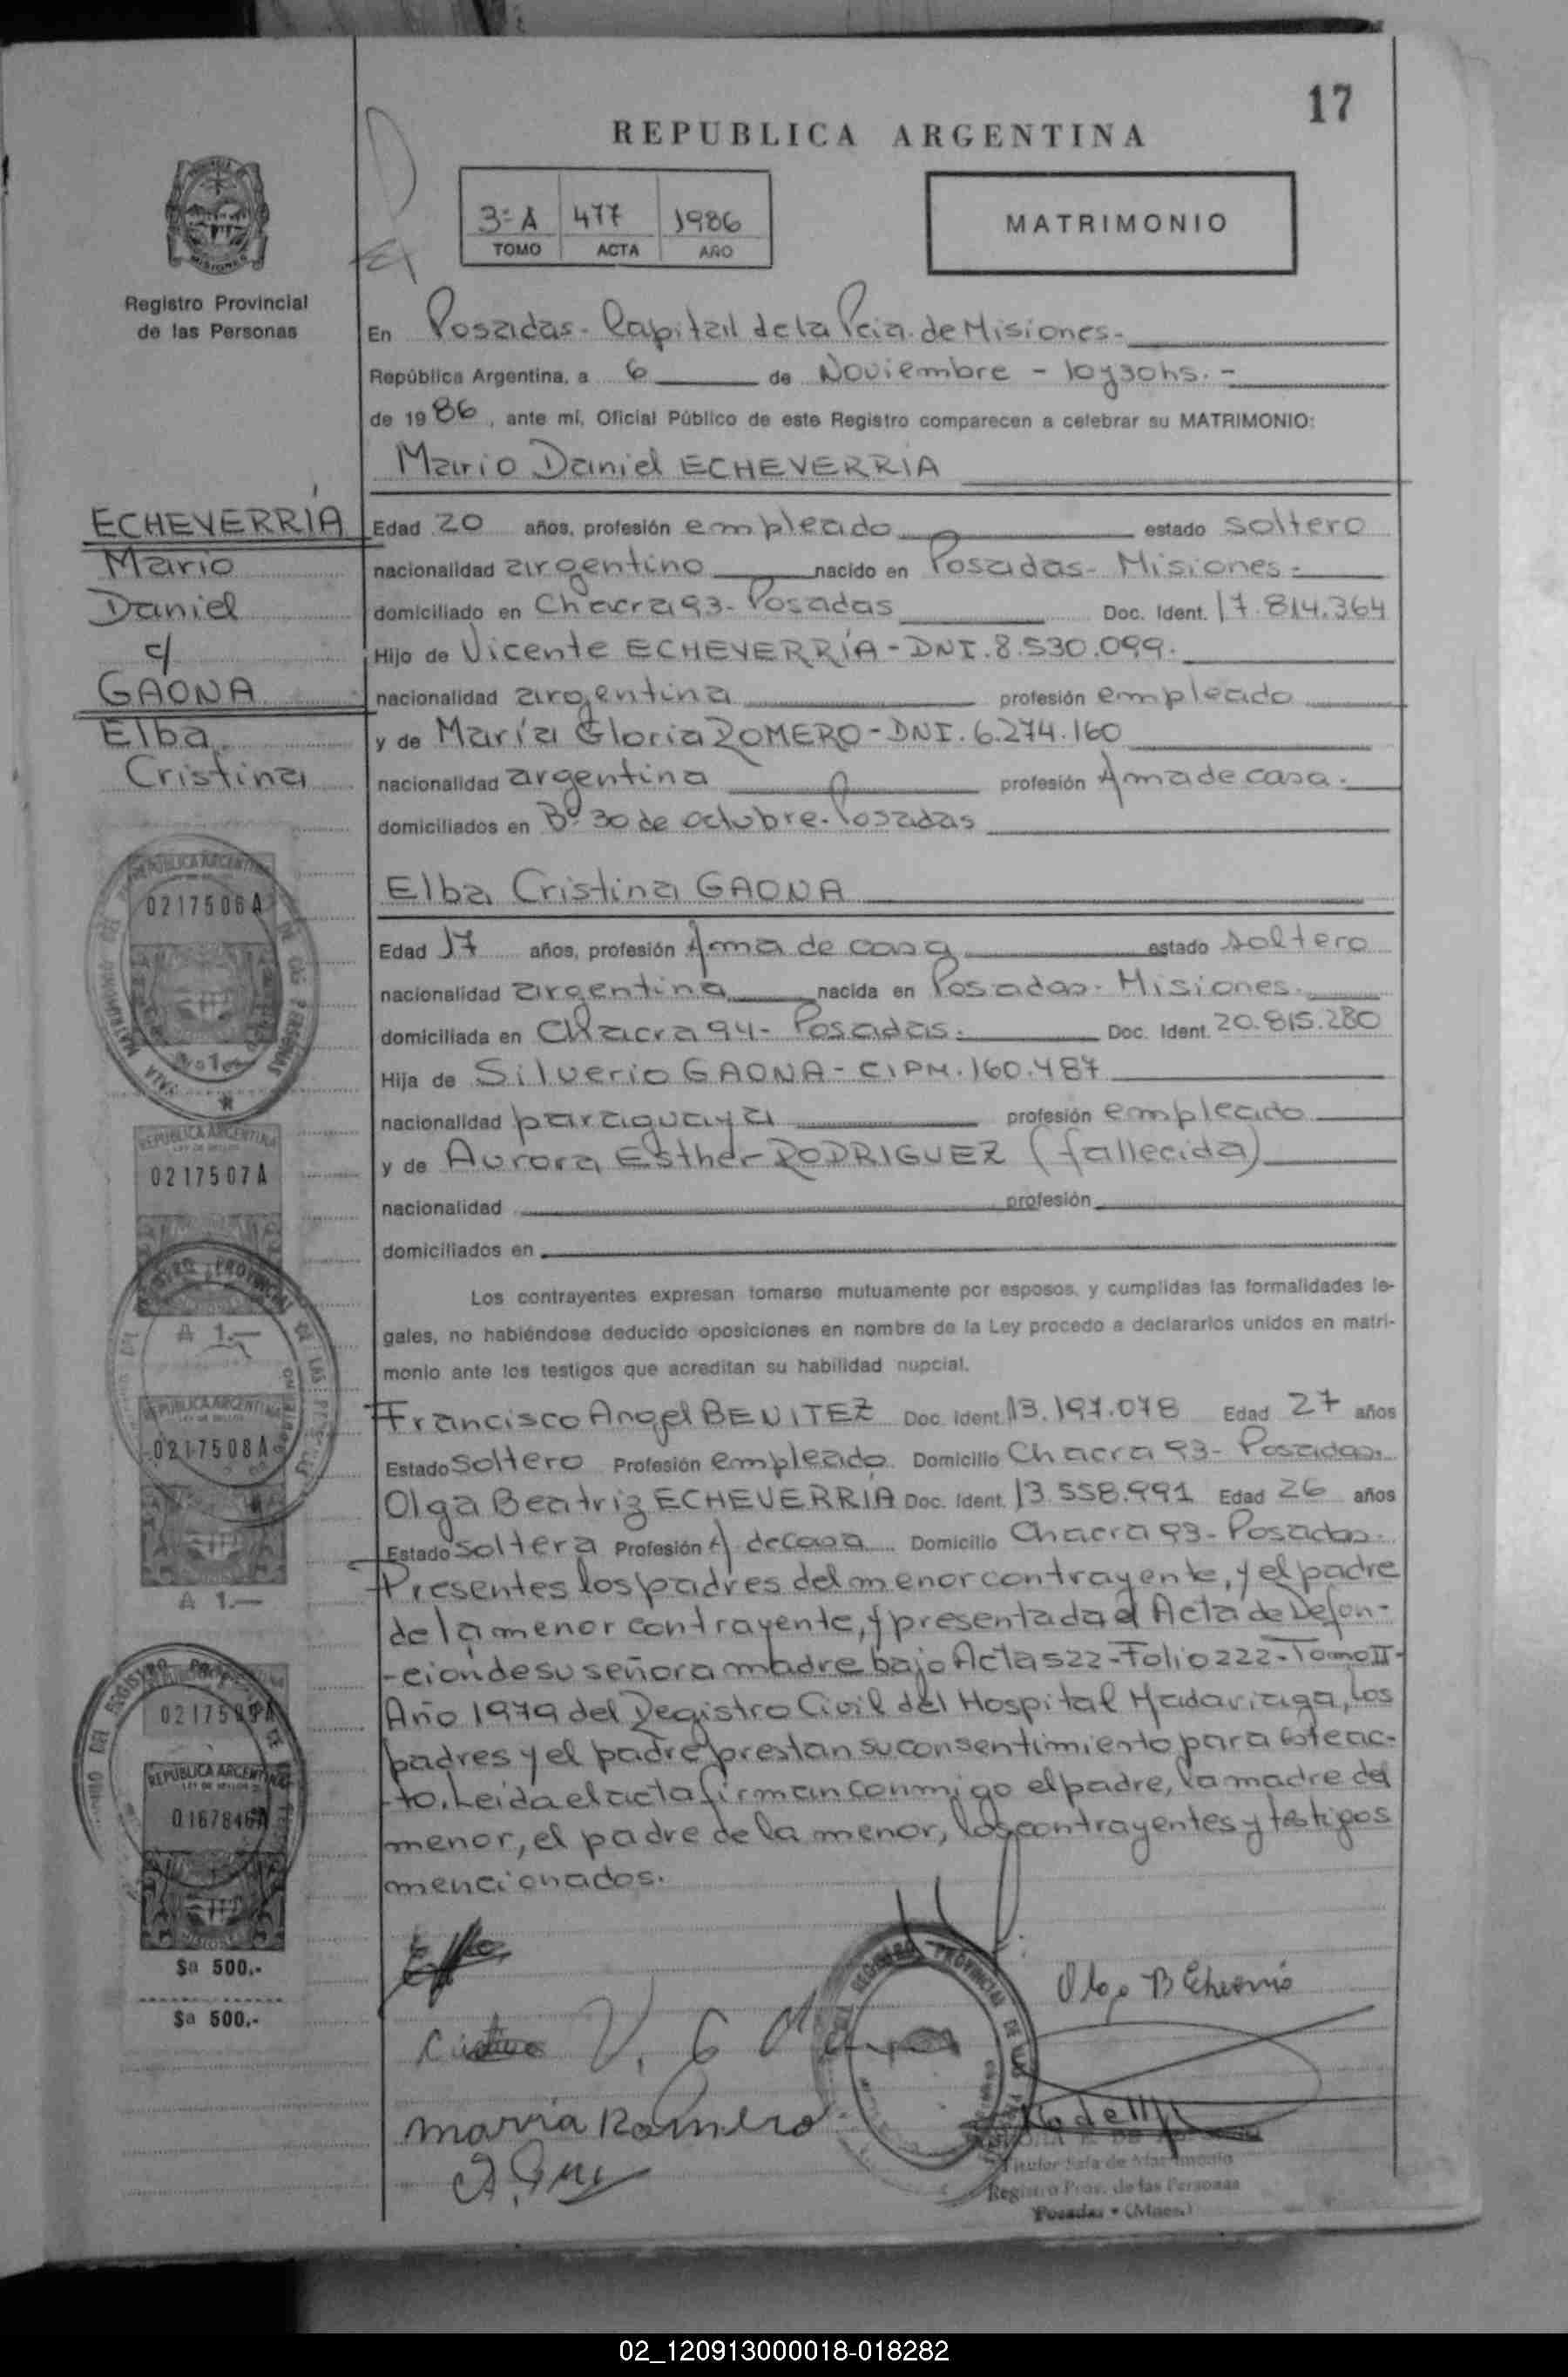 17
REPUBLICA ARGENTINA
3ª A 477 1986
TOMO ACTA AÑO
MATRIMONIO
Registro Provincial
de las Personas
En Posadas - Capital de la Pcia. de Misiones -
República Argentina, a 6 de Noviembre - 10 y 30 hs. -
de 19 86, ante mí, Oficial Público de este Registro comparecen a celebrar su MATRIMONIO:
Mario Daniel ECHEVERRIA
ECHEVERRÍA
Mario
Daniel
c/
GAONA
Elba
Cristina
Edad 20 años, profesión empleado estado soltero
nacionalidad argentino nacido en Posadas - Misiones -
domiciliado en Chacra 93 - Posadas Doc. Ident. 17.814.364
Hijo de Vicente ECHEVERRÍA - DNI. 8.530.099.
nacionalidad argentina profesión empleado
y de María Gloria ROMERO - DNI. 6.274.160
nacionalidad argentina profesión Ama de casa.
domiciliados en Bº 30 de octubre - Posadas
Elba Cristina GAONA
Edad 17 años, profesión Ama de casa estado soltero
nacionalidad argentina nacida en Posadas - Misiones.
domiciliada en Chacra 94 - Posadas. Doc. Ident. 20.815.280
Hija de Silverio GAONA - CIPM. 160.487
nacionalidad paraguaya profesión empleado
y de Aurora Esther RODRIGUEZ (fallecida)
nacionalidad profesión
domiciliados en
Los contrayentes expresan tomarse mutuamente por esposos, y cumplidas las formalidades le-
gales, no habiéndose deducido oposiciones en nombre de la Ley procedo a declararlos unidos en matri-
monio ante los testigos que acreditan su habilidad nupcial.
Francisco Angel BENITEZ Doc. Ident. 13.197.078 Edad 27 años
Estado soltero Profesión empleado Domicilio Chacra 93 - Posadas.
Olga Beatriz ECHEVERRIA Doc. Ident. 13.558.991 Edad 26 años
Estado soltera Profesión A de casa Domicilio Chacra 93 - Posadas.
Presentes los padres del menor contrayente, y el padre
de la menor contrayente, y presentada el Acta de Defun-
-cion de su señora madre bajo Acta 522 - Folio 222 - Tomo II -
Año 1979 del Registro Civil del Hospital Madariaga, los
padres y el padre prestan su consentimiento para este ac-
-to. Leida el acta firman conmigo el padre, la madre del
menor, el padre de la menor, los contrayentes y testigos
mencionados.
REPUBLICA ARGENTINA
0217506A
REPUBLICA ARGENTINA
0217507A
A 1.—
REPUBLICA ARGENTINA
0217508A
A 1.—
REPUBLICA ARGENTINA
0167846A
$a 500.-
$a 500.-
Olga B Echeverria
maria Romero
Titular Sala de Matrimonio
Registro Prov. de las Personas
Posadas - (Mnes.)
02_120913000018-018282